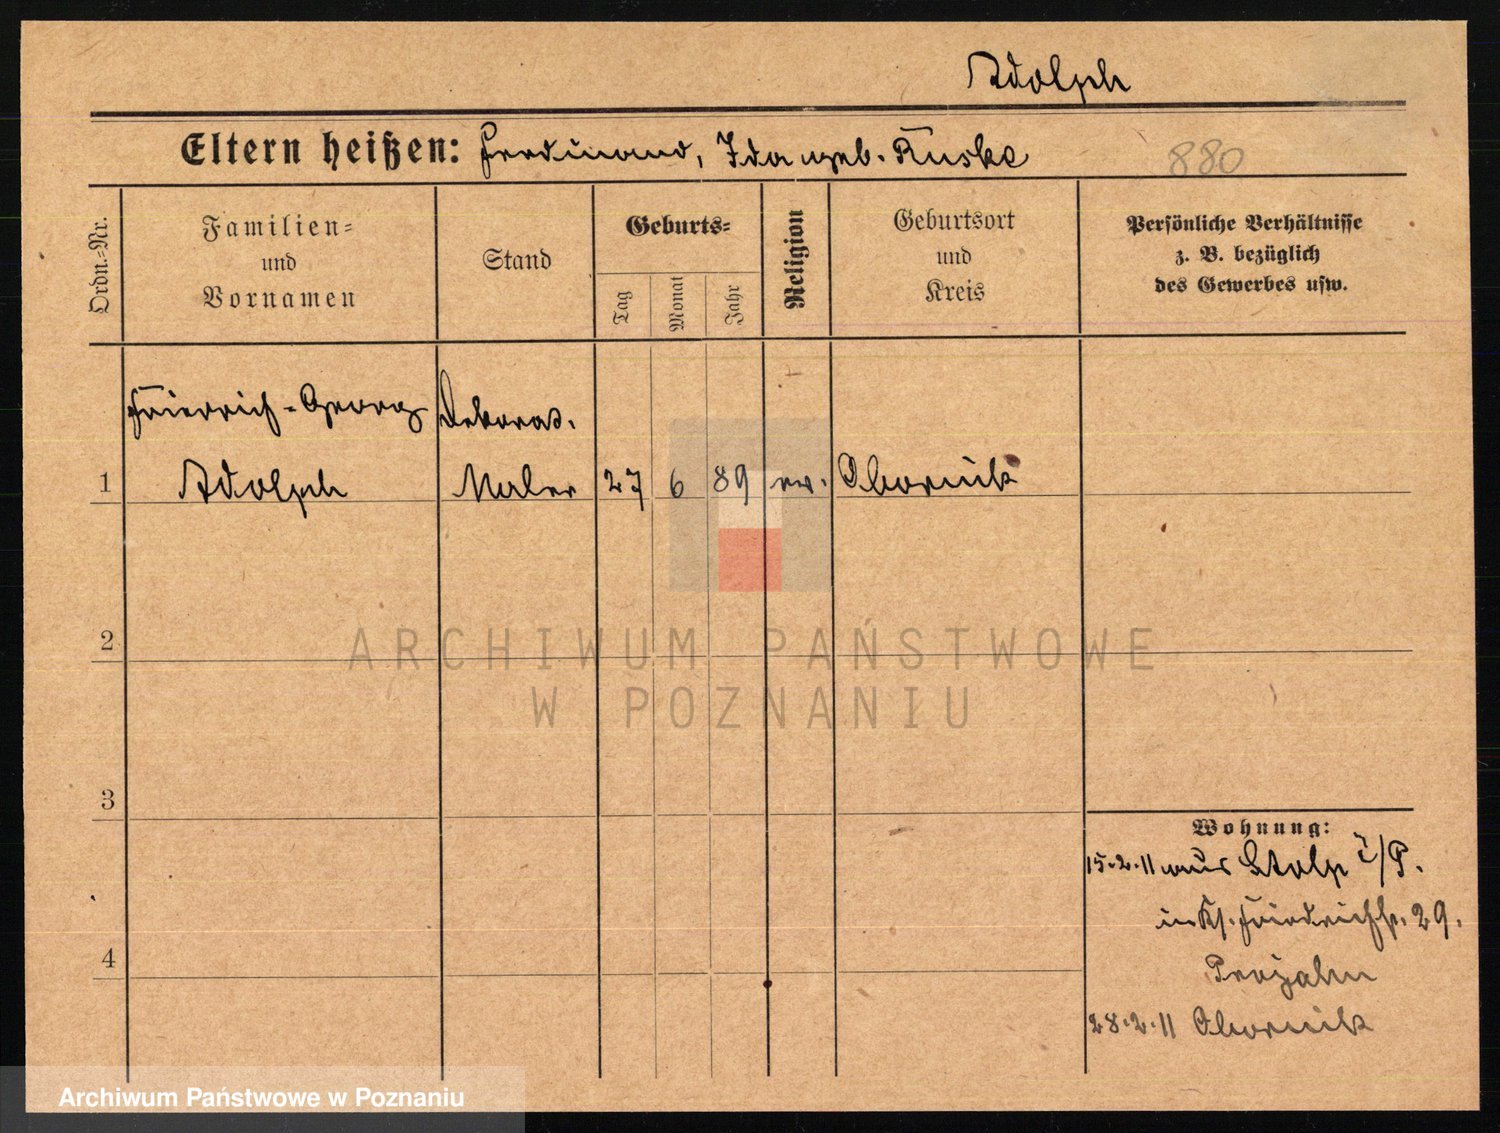 Adolph
Eltern heißen: Ferdinand, Ida geb. Kuske
880
Ordn.=Nr.
Familien=
und
Vornamen
Stand
Geburts=
Tag
Monat
Jahr
Religion
Geburtsort
und
Kreis
Persönliche Verhältnisse
z. B. bezüglich
des Gewerbes usw.
Friedrich-Georg Dekorat.
1 Adolph Maler 27 6 89 ev. Obornik
2
3
4
Wohnung:
15.2.11 aus Stolp i/P.
in Kl. Friedrichstr. 29.
28.2.11 Obornik
ARCHIWUM PAŃSTWOWE
W POZNANIU
Archiwum Państwowe w Poznaniu